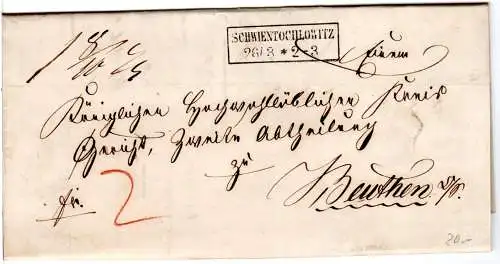 SCHWIENTOCHLOWITZ
26/3 * 2-3
Einem
Königlichen Hochwohllöblichen Kreis
Gericht, Zweite Abtheilung
zu
Beuthen o/S.
fr. 2
20.-